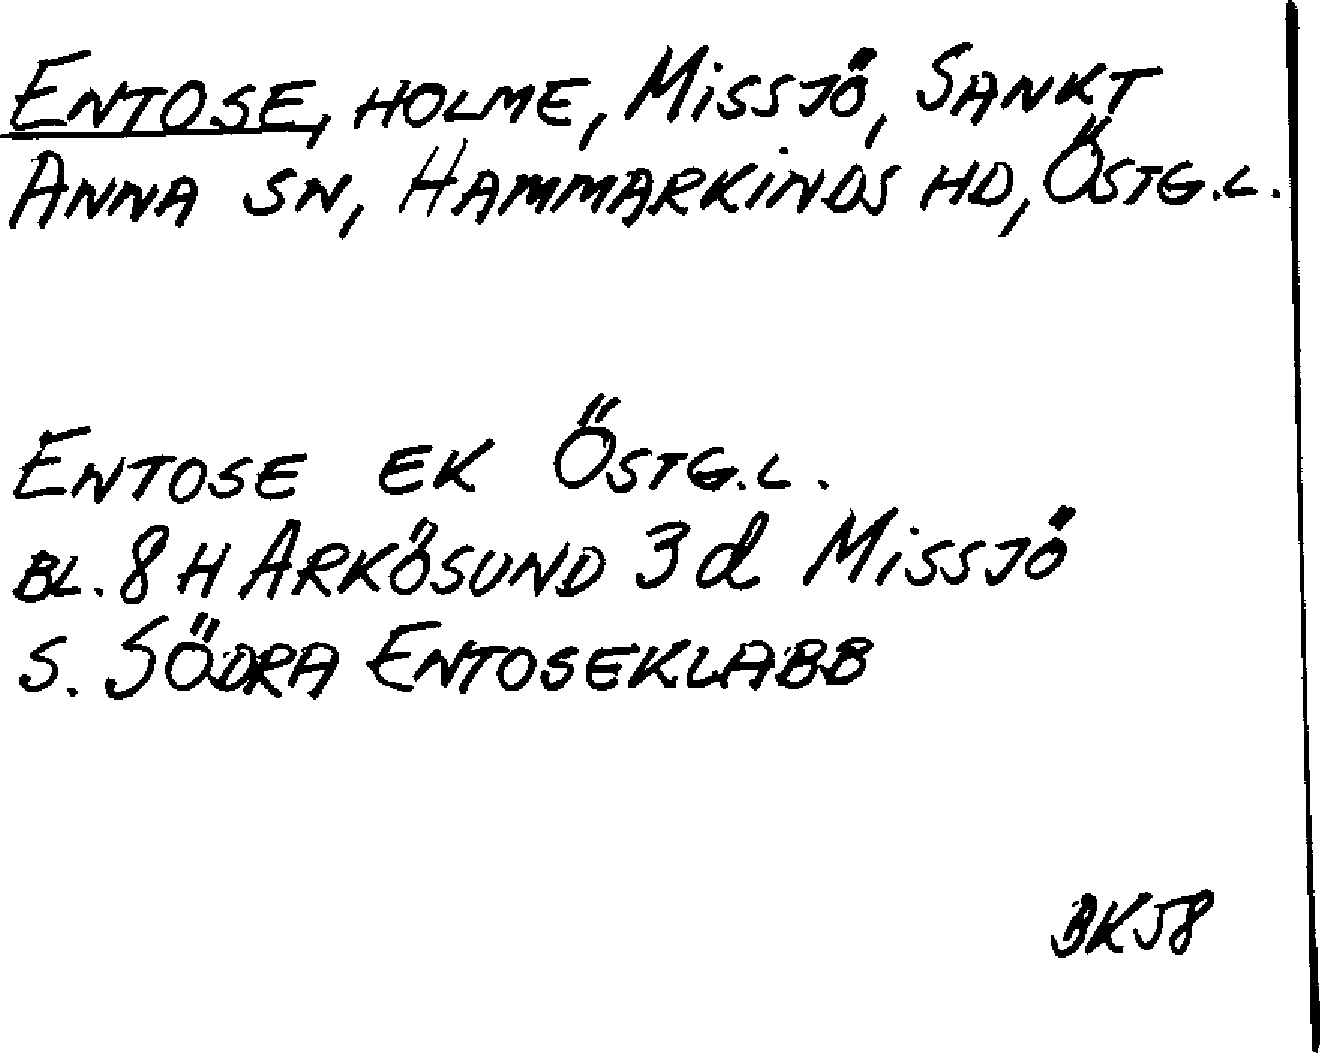 ENTOSE, HOLME, MISSJÖ, SANKT
ANNA SN, HAMMARKINDS HD, ÖSTG.L.
ENTOSE EK ÖSTG.L.
BL. 8 H ARKÖSUND 3 d MISSJÖ
S. SÖDRA ENTOSEKLABB
BK58